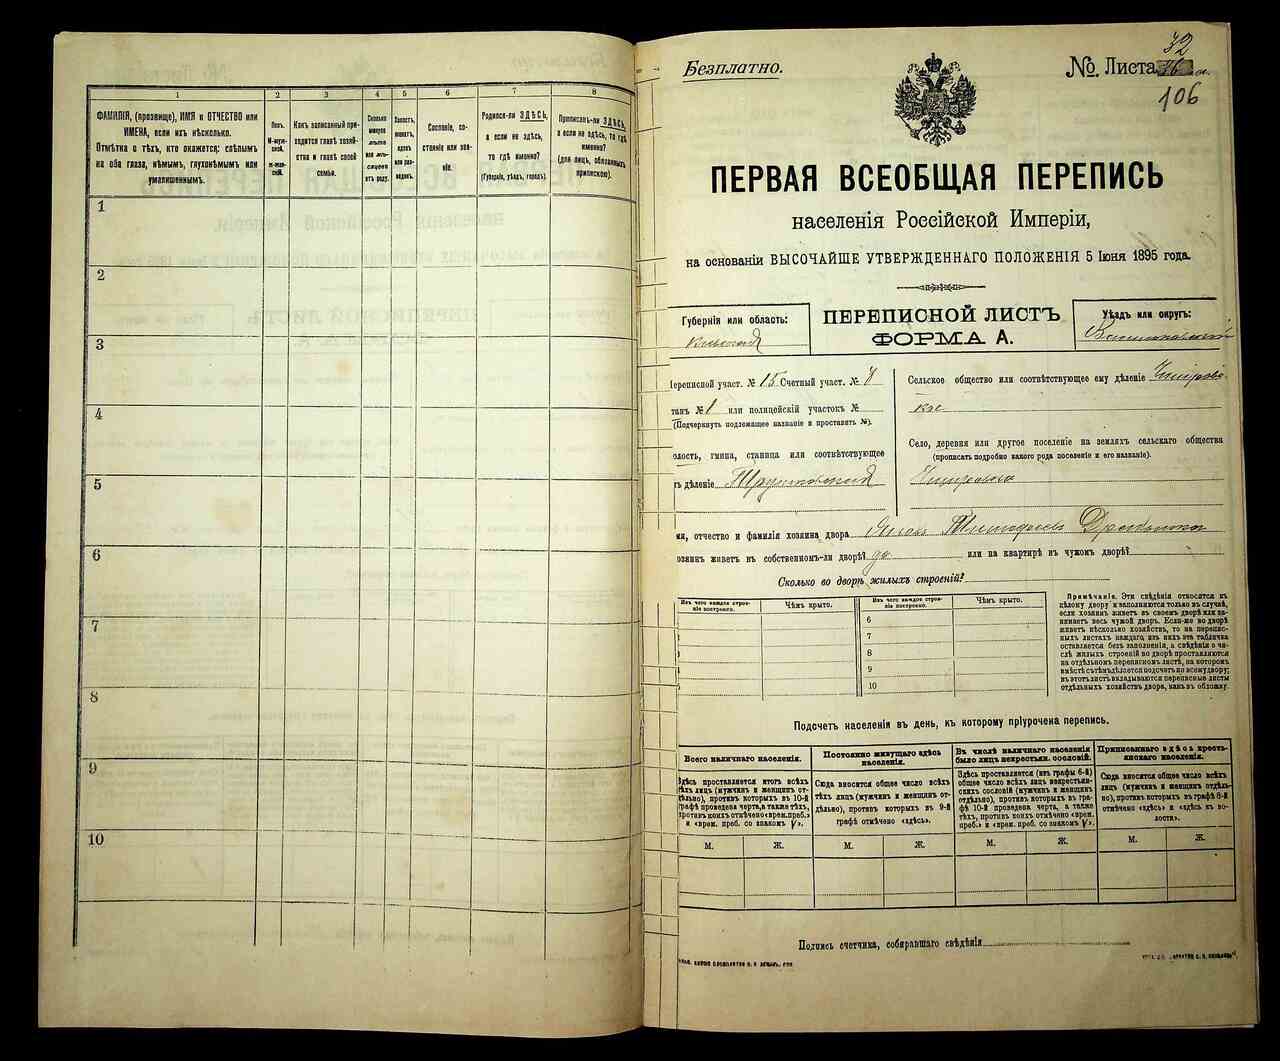 1
2
3
4
5
6
7
8
ФАМИЛІЯ, (прозвище), ИМЯ и ОТЧЕСТВО или
ИМЕНА, если ихъ нѣсколько.
Отмѣтка о тѣхъ, кто окажется: слѣпымъ
на оба глаза, нѣмымъ, глухонѣмымъ или
умалишеннымъ.
Полъ.
М-муж-
ской.
ж-жен-
скій.
Какъ записанный при-
ходится главѣ хозяй-
ства и главѣ своей
семьи.
Сколько
минуло
лѣтъ
или мѣ-
сяцевъ
отъ роду.
Холостъ,
женатъ,
вдовъ
или раз-
веденъ.
Сословіе, со-
стояніе или зва-
ніе.
Родился-ли ЗДѢСЬ,
а если не здѣсь,
то гдѣ именно?
(Губернія, уѣздъ, городъ).
Приписанъ-ли ЗДѢСЬ,
а если не здѣсь, то гдѣ
именно?
(для лицъ, обязанныхъ
припискою).
1
2
3
4
5
6
7
8
9
10
Безплатно.
№ Листа
32
106
ПЕРВАЯ ВСЕОБЩАЯ ПЕРЕПИСЬ
населенія Россійской Имперіи,
на основаніи ВЫСОЧАЙШЕ УТВЕРЖДЕННАГО ПОЛОЖЕНІЯ 5 Іюня 1895 года.
Губернія или область:
ПЕРЕПИСНОЙ ЛИСТЪ
ФОРМА А.
Уѣздъ или округъ:
Переписной участ. № 15 Счетный участ. №
танъ № 1 или полицейскій участокъ №
(Подчеркнуть подлежащее названіе и проставить №).
олость, гмина, станица или соотвѣтствующее
ъ дѣленіе
Сельское общество или соотвѣтствующее ему дѣленіе
кое
Село, деревня или другое поселеніе на земляхъ сельскаго общества
(прописать подробно какого рода поселеніе и его названіе).
мя, отчество и фамилія хозяина двора
озяинъ живетъ въ собственномъ-ли дворѣ? да или на квартирѣ въ чужомъ дворѣ?
Сколько во дворѣ жилыхъ строеній?
Изъ чего каждое строе-
ніе построено.
Чѣмъ крыто.
Изъ чего каждое строе-
ніе построено.
Чѣмъ крыто.
6
7
8
9
10
Примѣчаніе. Эти свѣдѣнія относятся къ
цѣлому двору и заполняются только въ случаѣ,
если хозяинъ живетъ въ своемъ дворѣ или за-
нимаетъ весь чужой дворъ. Если-же во дворѣ
живетъ нѣсколько хозяйствъ, то на перепис-
ныхъ листахъ каждаго изъ нихъ эта табличка
оставляется безъ заполненія, а свѣдѣнія о чи-
слѣ жилыхъ строеній во дворѣ проставляются
на отдѣльномъ переписномъ листѣ, на которомъ
вмѣстѣ съ тѣмъ дѣлается подсчетъ по всему двору;
въ этотъ листъ вкладываются переписные листы
отдѣльныхъ хозяйствъ двора, какъ въ обложку.
Подсчетъ населенія въ день, къ которому пріурочена перепись.
Всего наличнаго населенія.
Здѣсь проставляется итогъ всѣхъ
тѣхъ лицъ (мужчинъ и женщинъ от-
дѣльно), противъ которыхъ въ 10-й
графѣ проведена черта, а также тѣхъ,
противъ коихъ отмѣчено «врем. преб.»
и «врем. преб. со знакомъ V».
Постоянно живущаго здѣсь
населенія.
Сюда вносится общее число всѣхъ
тѣхъ лицъ (мужчинъ и женщинъ от-
дѣльно), противъ которыхъ въ 9-й
графѣ отмѣчено «здѣсь».
Въ числѣ наличнаго населенія
было лицъ некрестьян. сословій.
Здѣсь проставляется (изъ графы 6-й)
общее число всѣхъ лицъ некрестьян-
скихъ сословій (мужчинъ и женщинъ
отдѣльно), противъ которыхъ въ гра-
фѣ 10-й проведена черта, а также
тѣхъ, противъ коихъ отмѣчено «врем.
преб.» и «врем. преб. со знакомъ V».
Приписаннаго здѣсь кресть-
янскаго населенія.
Сюда вносится общее число всѣхъ
лицъ (мужчинъ и женщинъ отдѣль-
но), противъ которыхъ въ графѣ 8-й
отмѣчено «здѣсь» и «здѣсь къ во-
лости».
М.
Ж.
М.
Ж.
М.
Ж.
М.
Ж.
Подпись счетчика, собиравшаго свѣдѣнія